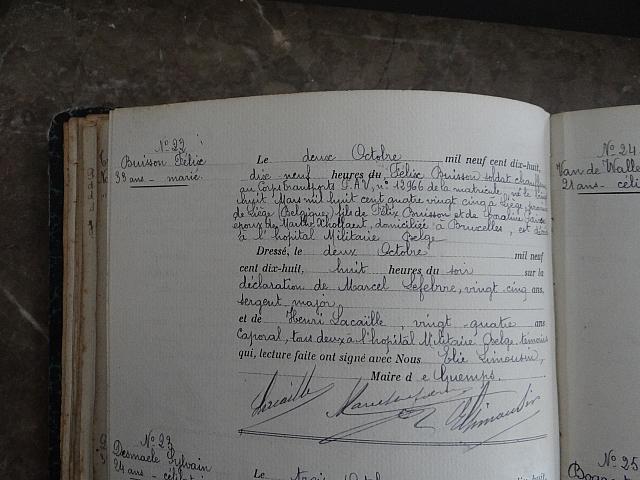 No 22
Buisson Félix
33 ans - marié.
Le deux Octobre mil neuf cent dix-huit,
dix neuf heures du Félix Buisson soldat chauffeur
au Corps transports T.A.V., n° 12966 de la matricule, né le
huit Mars mil huit cent quatre vingt cinq à Liège, province
de Liège (Belgique) fils de Félix Buisson et de
époux de Marthe domicilié à Bruxelles, est décédé
à l'hopital Militaire Belge
Dressé, le deux Octobre mil neuf
cent dix-huit, huit heures du soir sur la
déclaration de Marcel Lefebvre, vingt cinq ans,
sergent major
et de Henri Lacaille, vingt quatre ans
Caporal, tous deux à l'hopital Militaire Belge témoins
qui, lecture faite ont signé avec Nous Elie Limousin,
Maire de Guemps.
Lacaille
No 23
Desmaele Sylvain
24 ans - célibat
Le trois Octobre dix-huit,
No 24
Van de Walle
21 ans - céli
No 25